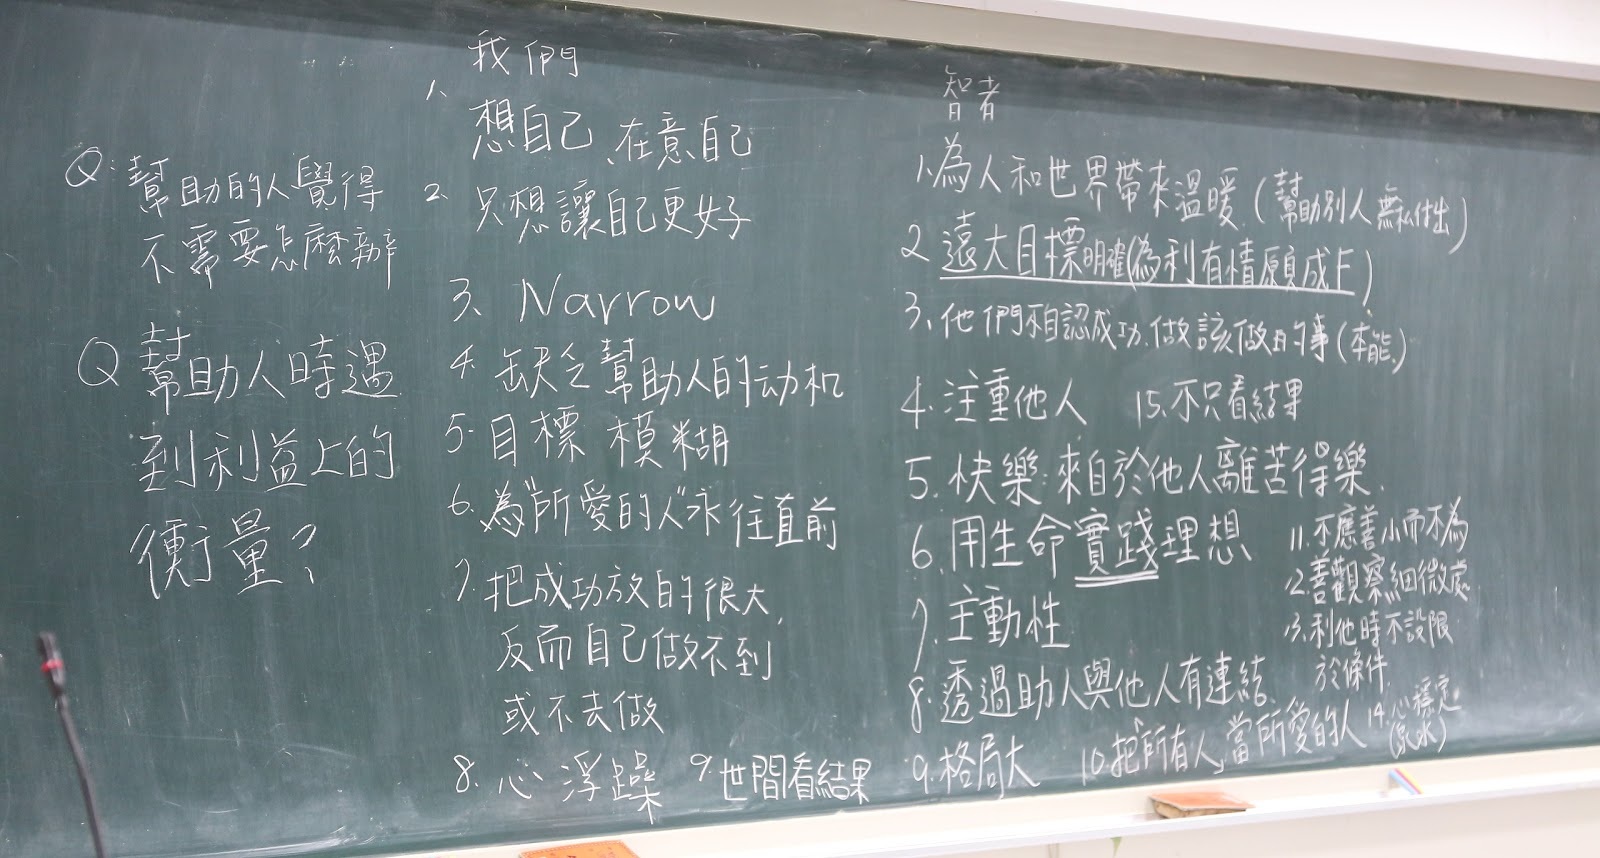 Q:幫助的人覺得
不需要怎麼辦
Q 幫助人時遇
到利益上的
衡量?
我們
1、想自己、在意自己
2、只想讓自己更好
3、Narrow
4. 缺乏幫助人的动机
5. 目標模糊
6. 為"所愛的人"永往直前
7. 把成功放的很大,
反而自己做不到
或不去做
8. 心浮躁 9. 世間看結果
智者
1.為人和世界帶來溫暖.(幫助別人無私付出)
2 遠大目標明確(為利有情願成
3、他們不自認成功.做該做的事(本能.)
4.注重他人 15.不只看結果
5.快樂:來自於他人離苦得樂.
6.用生命實踐理想
7.主動性
8.透過助人與他人有連結.
9.格局大 10.把「所有人」當所愛的人
11.不應善小而不為
12.善觀察細微處
13.利他時不設限
於條件.
14.心穩定.